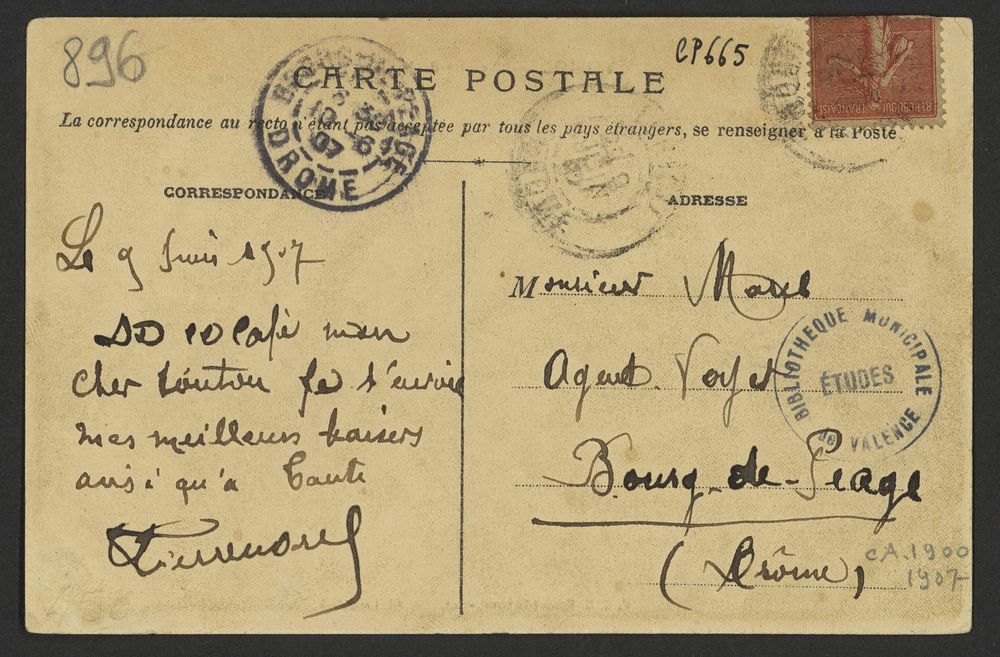 896
CP665
CARTE POSTALE
La correspondance au recto n'étant pas acceptée par tous les pays étrangers, se renseigner à la Poste
BOURG-DE-PEAGE
10 -6
07
DROME
REPUBLIQUE FRANÇAISE
CORRESPONDANCE
ADRESSE
Le 9 Juin 1907
mon
cher tonton je t'envoie
mes meilleurs baisers
ainsi qu'a tante
Monsieur Morel
Agent Voyer
Bourg-de-Péage
(Drôme)
BIBLIOTHEQUE MUNICIPALE
ÉTUDES
de VALENCE
CA.1900
1907